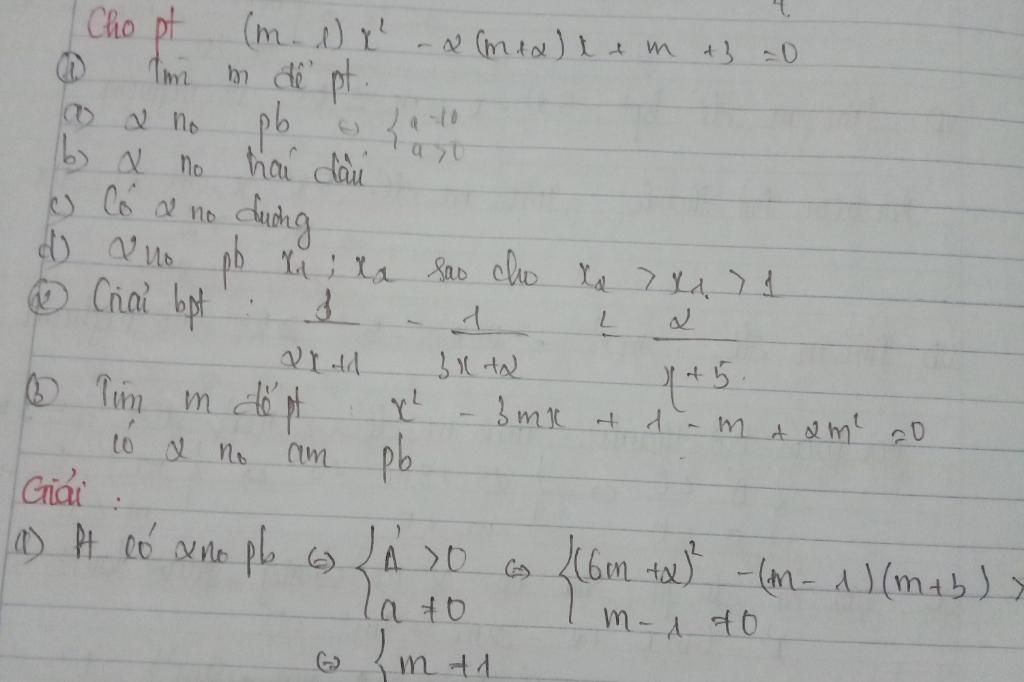 Cho pt (m-1)x² - 2(m+2)x + m + 3 = 0
① Tìm m để pt.
a) 2 no pb ⇔ { a ≠ 0
a > 0
b) 2 no trái dấu
c) Có 2 no dương
d) 2 no pb x₁ ; x₂ sao cho x₂ > x₁ > 1
② Giải bpt : 1/(2x+1) - 1/(3x+2) < 2/(x+5).
③ Tìm m để pt : x² - 3mx + 1 - m + 2m² = 0
có 2 no âm pb
Giải :
a) Pt có 2 no pb ⇔ { Δ' > 0 ⇔ { (6m+2)² - (m-1)(m+3) >
a ≠ 0 m - 1 ≠ 0
⇔ { m ≠ 1